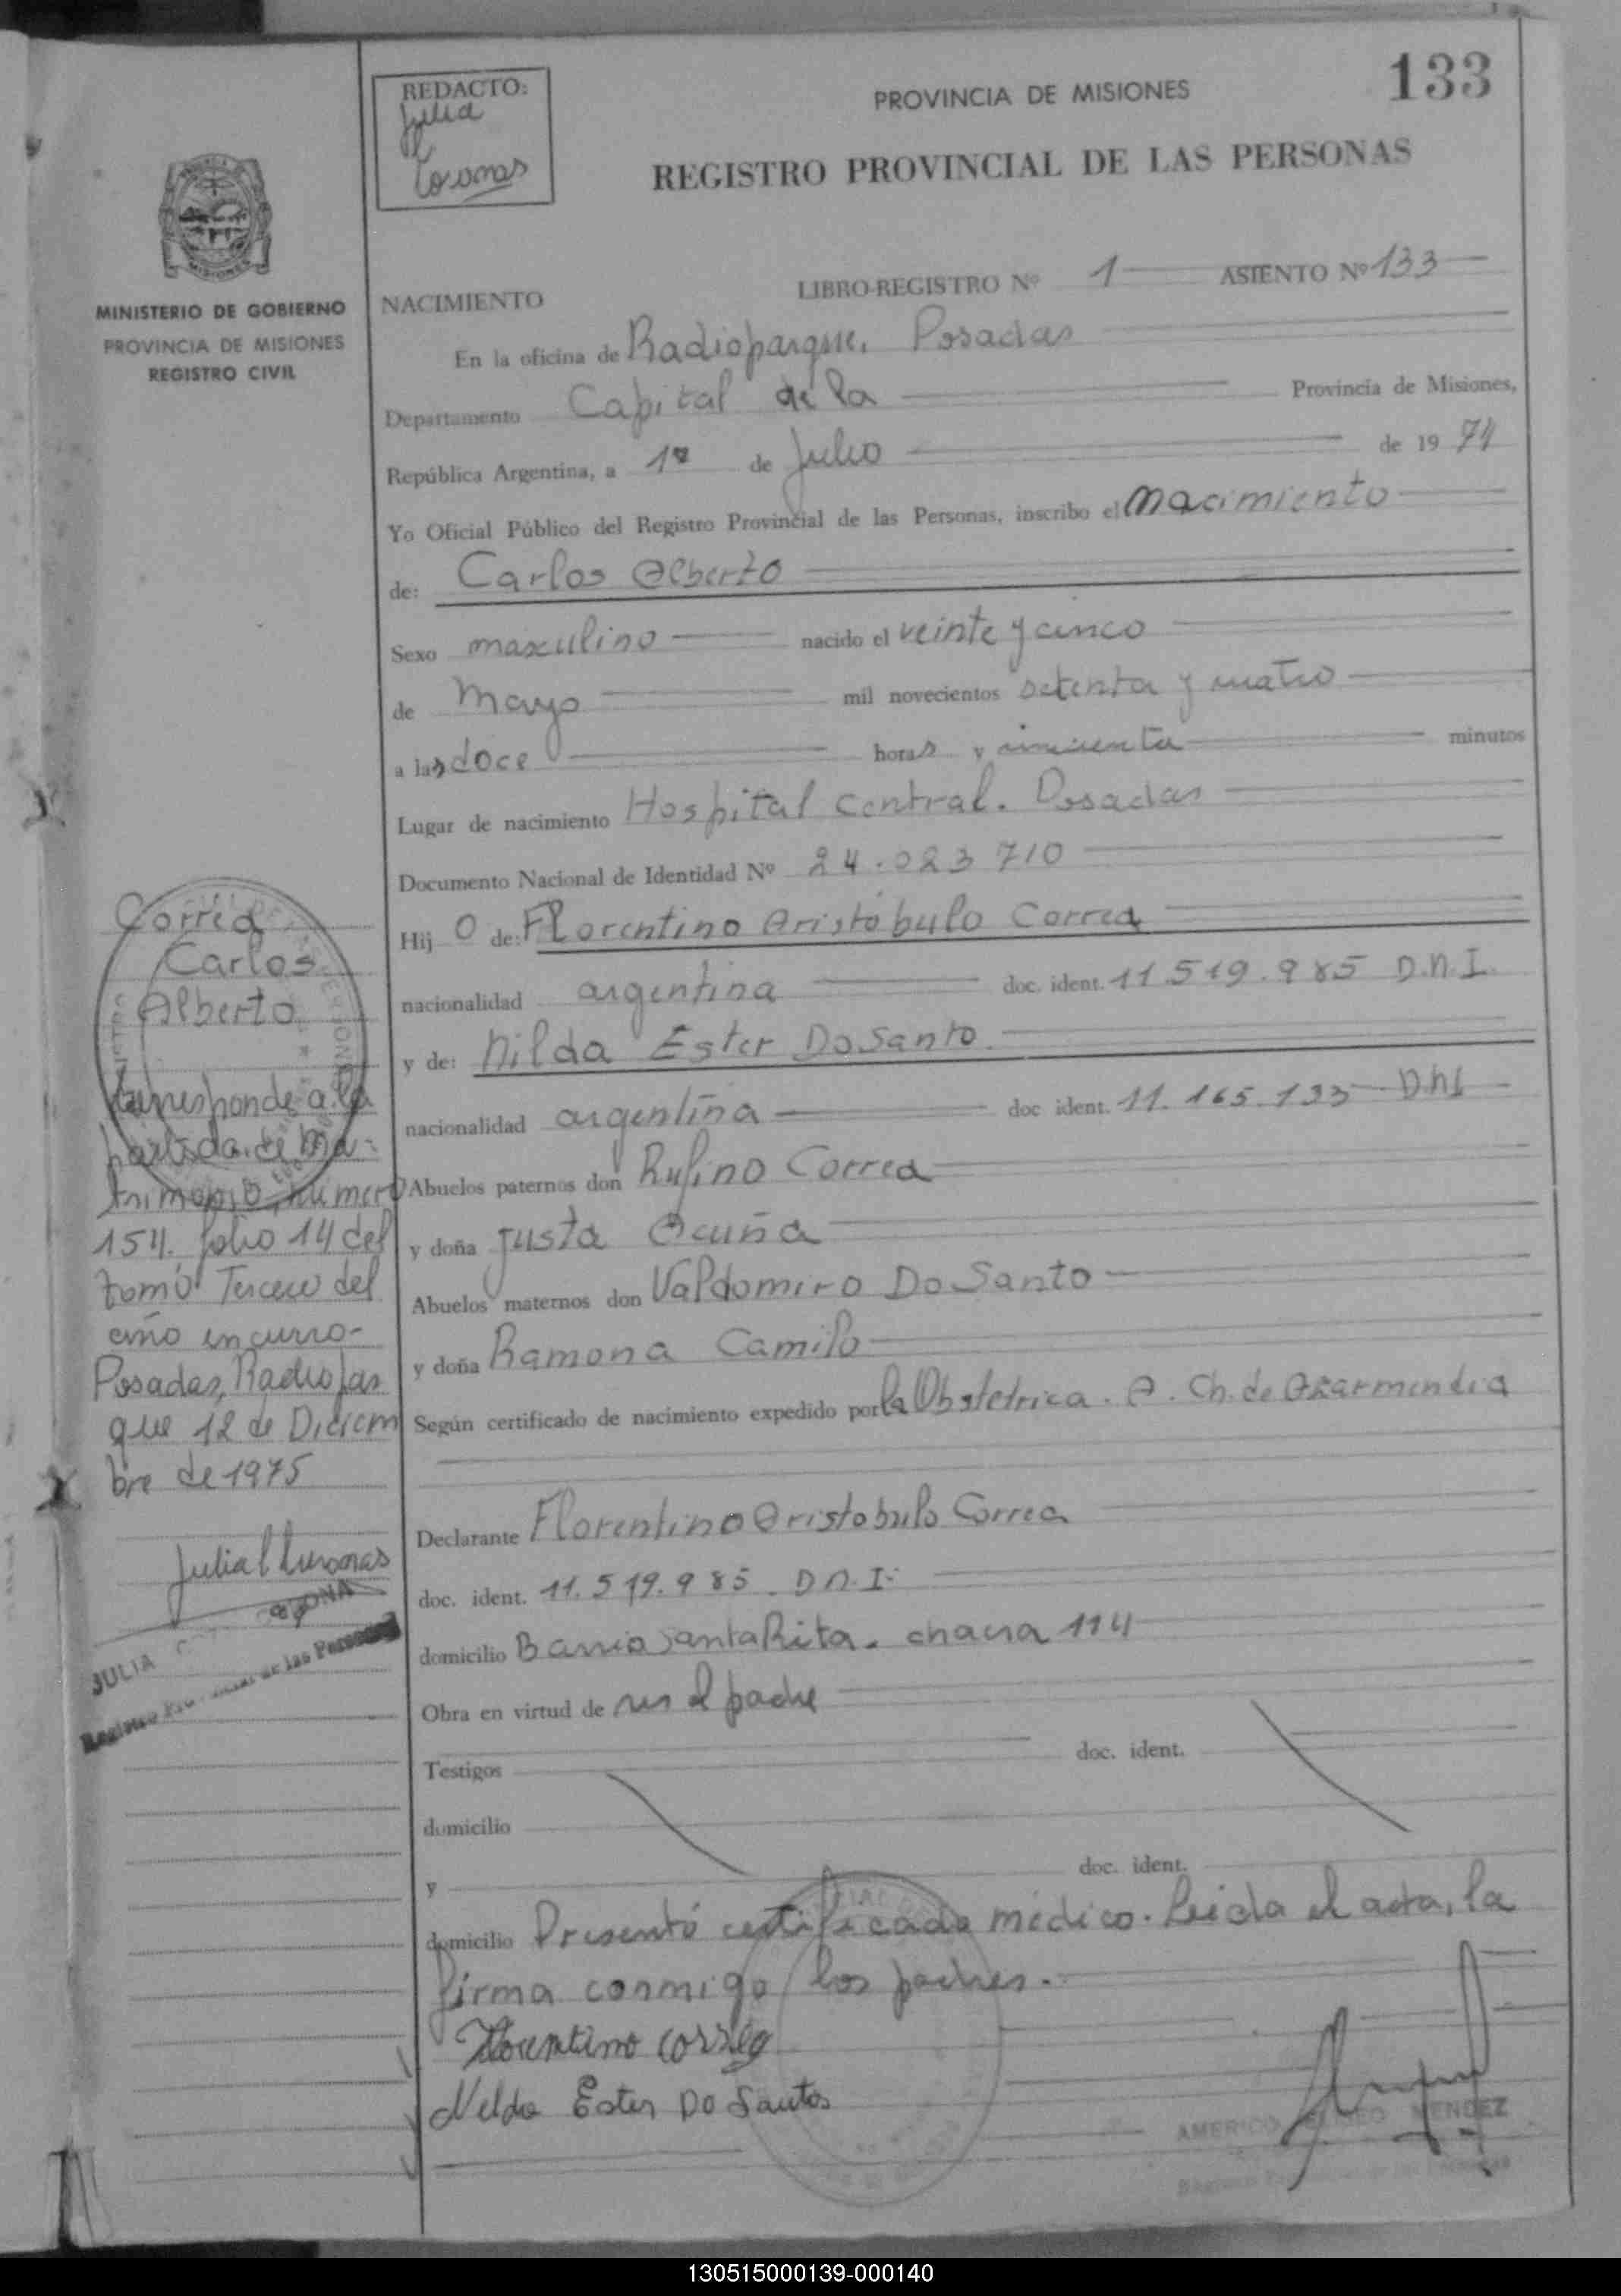 133
REDACTO:
Julia
Coronas
PROVINCIA DE MISIONES
REGISTRO PROVINCIAL DE LAS PERSONAS
MISIONES
MINISTERIO DE GOBIERNO
PROVINCIA DE MISIONES
REGISTRO CIVIL
NACIMIENTO LIBRO-REGISTRO Nº 1 ASIENTO Nº 133
En la oficina de Radioparque. Posadas
Departamento Capital de la Provincia de Misiones,
República Argentina, a 1º de Julio de 19 74
Yo Oficial Público del Registro Provincial de las Personas, inscribo el Nacimiento
de: Carlos Alberto
Sexo masculino nacido el veinte y cinco
de Mayo mil novecientos setenta y cuatro
a las doce horas y cincuenta minutos
Lugar de nacimiento Hospital Central. Posadas
Documento Nacional de Identidad Nº 24.023 710
Hij o de: Florentino Aristóbulo Correa
nacionalidad argentina doc. ident. 11.519.985 D.N.I.
y de: Nilda Ester Do Santo
nacionalidad argentina doc ident. 11.165.133 DNI
Abuelos paternos don Rufino Correa
y doña Justa Acuña
Abuelos maternos don Valdomiro Do Santo
y doña Ramona Camilo
Según certificado de nacimiento expedido por la Obstetrica. A. Ch. de Garmendia
Declarante Florentino Aristobulo Correa
doc. ident. 11.519.985. D.N.I.
domicilio Barrio Santa Rita. chacra 114
Obra en virtud de ser el padre
Testigos doc. ident.
domicilio
y doc. ident.
domicilio Presentó certificado médico. Leida el acta, la
firma conmigo los padres.
Florentino Correa
Nelda Ester Do Santos
AMERICO ELISEO MENDEZ
Correa
Carlos
Alberto
Corresponde a la
partida de Ma-
trimonio número
154. folio 14 del
tomo Tercero del
año en curso-
Posadas, Radiopar
que 12 de Diciem
bre de 1975
Julia Coronas
JULIA
Registro Provincial de las Personas
130515000139-000140